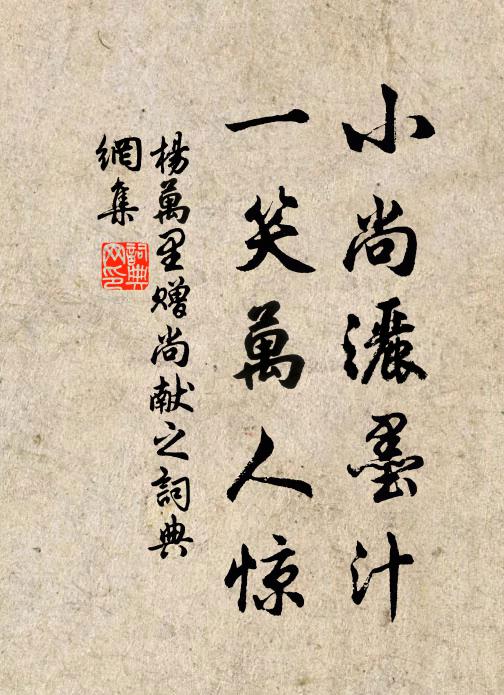 小尚灑墨汁
一笑萬人惊
楊萬里贈尚献之詞典
網集
詞典网印